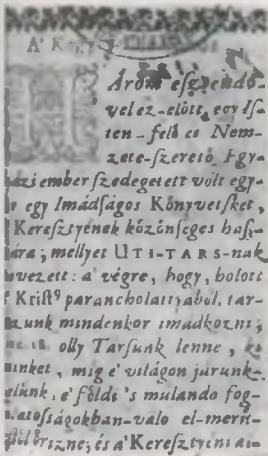 Három eſztendő-
vel ez-elött, egy Iſ-
ten-felö es Nem-
zete-ſzeretö Egy-
házi ember ſzedegetett volt egy-
egy Imádságos Könyvetſket,
Kereſztyének közönſeges haſz-
ára; mellyet UTI-TARS-nak
nevezett: a' végre, hogy, holott
Kriſt⁹ parancholattyaból, tar-
tzunk mindenkor imadkozni;
olly Tarſunk lenne,
minket, mig e' világon járunk-
élünk, e' földi 's mulando fog-
lalatoſságokban-valo el-merü-
örizne; és a' Kereſztyéni